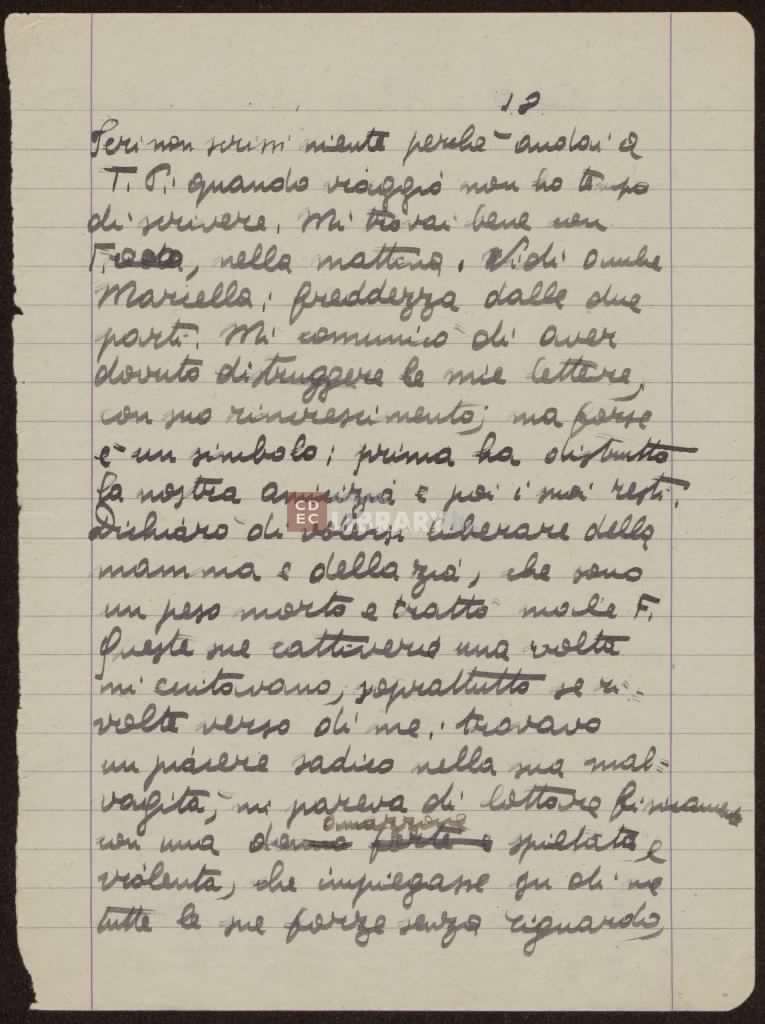 18
Ieri non scrissi niente perché andai a
T. P.; quando viaggio non ho tempo
di scrivere. Mi trovai bene con
Frada, nella mattina. Vidi anche
Marcella; freddezza dalle due
parti. Mi comunicò di aver
dovuto distruggere le mie lettere,
con suo rincrescimento; ma forse
è un simbolo: prima ha distrutto
la nostra amicizia e poi i suoi resti.
Dichiarò di volersi liberare della
mamma e della zia, che sono
un peso morto e trattò male F.
Queste sue cattiverie una volta
mi eccitavano, soprattutto se ri-
volte verso di me; trovavo
un piacere sadico nella sua mal-
vagità; mi pareva di lottare fisicamente
amazzone
con una donna forte e spietata e
violenta, che impiegasse su di me
tutte le sue forze senza riguardo,
CDEC LIBRARY